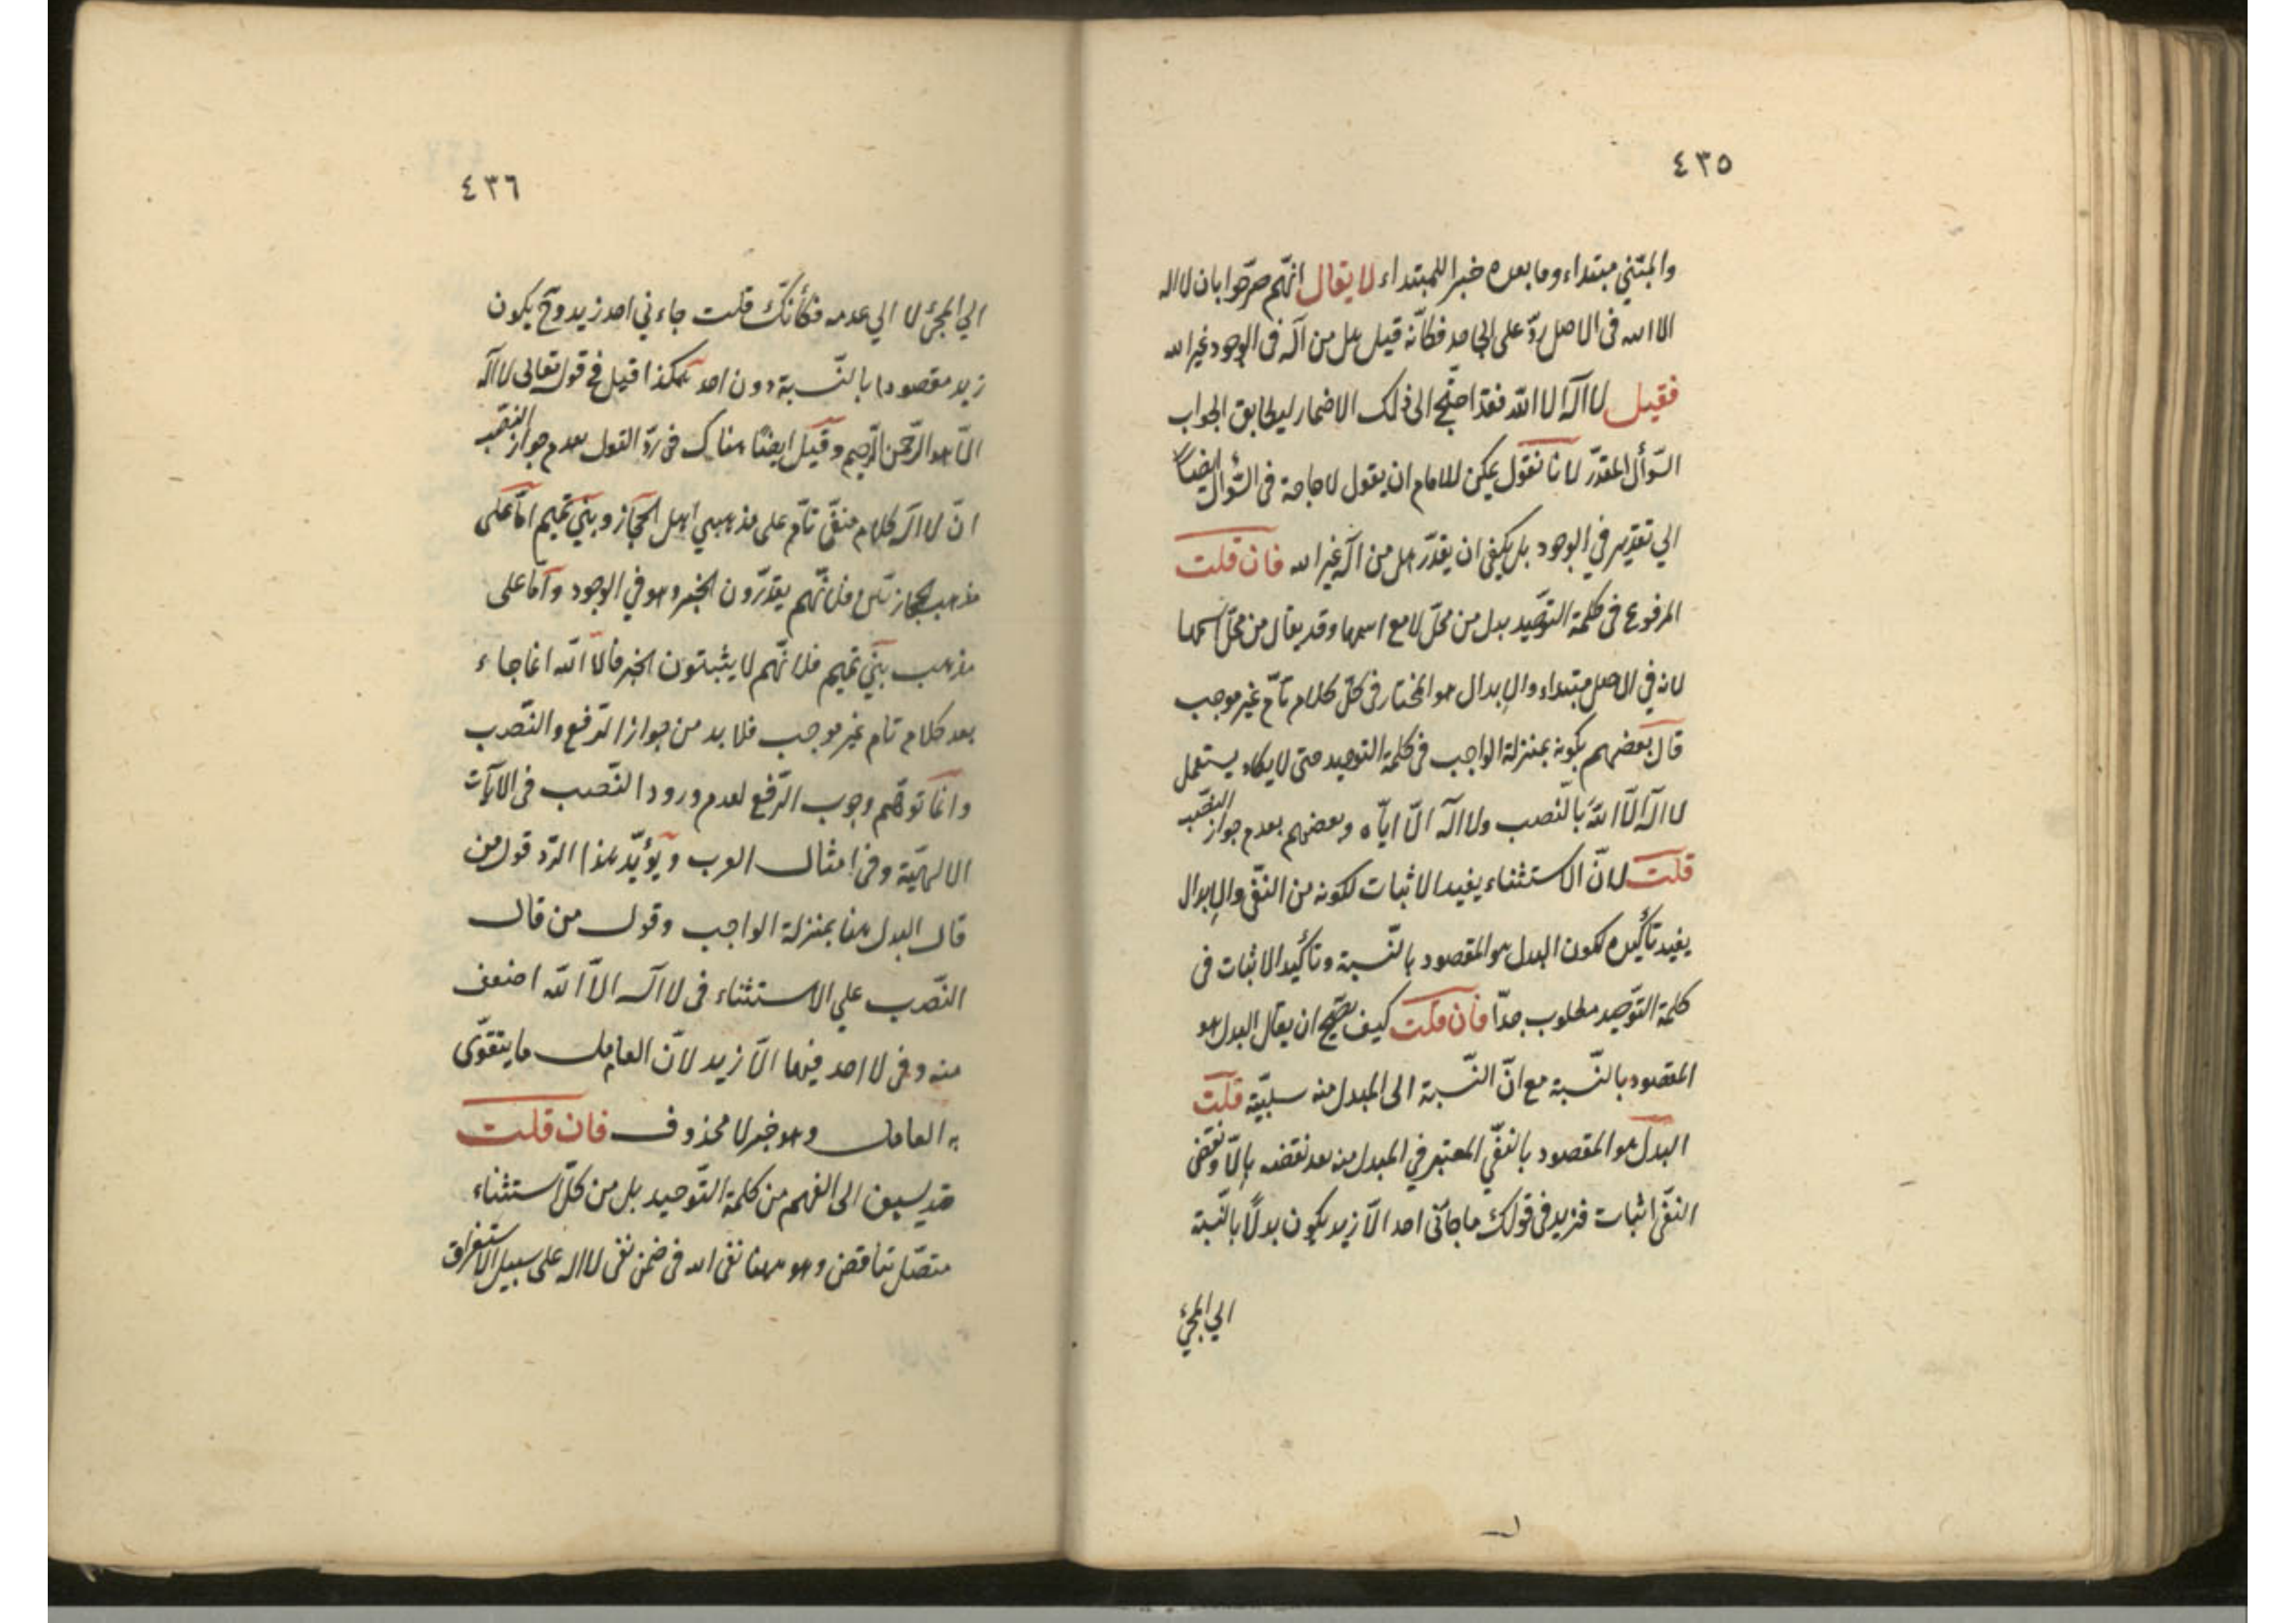 ٤٣٥
والمبتني مبتداء وما بعده خبرا للمبتداء لا يقال انّهم صرّحوا بان لا اله
الا الله فى الاصل ردّ على الجاحد فكأنّه قيل هل من آله فى الوجود غير الله
فقيل لا اله الا الله فقد احتيج الى ذلك الاضمار ليطابق الجواب
السّؤال المقدّر لانا نقول يمكن للامام ان يقول لا حاجة فى السّؤال ايضاً
الي تقدير في الوجود بل يكفى ان يقدّر هل من اله غير الله فان قلت
المرفوع فى كلمة التوحيد بدل من محلّ لا مع اسمها وقد يقال من محلّ اسمها
لانه في الاصل مبتداء والابدال هو المختار فى كلّ كلام تامّ غير موجب
قال بعضهم بكونه بمنزلة الواجب فى كلمة التوحيد حتى لا يكاد يستعمل
لا اله الّا اللهَ بالنّصب ولا اله الّا ايّاه وبعضهم بعدم جواز النصب
قلت لانّ الاستثناء يفيد الاثبات لكونه من النّفى والابدال
يفيد تأكيده لكون البدل هو المقصود بالنّسبة وتأكيد الاثبات فى
كلمة التوحيد مطلوب جدّا فان قلت كيف يصحّ ان يقال البدل هو
المقصود بالنّسبة مع انّ النّسبة الى المبدل منه سلبيّة قلت
البدل هو المقصود بالنفّي المعتبر في المبدل منه بعد نقضه بالّا ونقض
النفّى اثبات فزيد فى قولك ما جاءنى احد الّا زيد يكون بدلًا بالنّسبة
الي المجئ
٤٣٦
الي المجئ لا الي عدمه فكأنّك قلت جاءني احد زيد وح يكون
زيد مقصودا بالنّسبة دون احد هكذا قيل في قوله تعالى لا اله
الّا هو الرّحمن الرّحيم وقيل ايضًا هناك فى ردّ القول بعدم جواز النصب
انّ لا اله كلام منفىّ تامّ على مذهبي اهل الحجاز وبني تميم امّا على
مذهب الحجاز فلانّهم يقدّرون الخبر وهو في الوجود وامّا على
مذهب بني تميم فلانّهم لا يثبتون الخبر فالّا الله انما جاء
بعد كلام تام غير موجب فلا بد من جواز الرّفع والنّصب
وانّما توهّم وجوب الرّفع لعدم ورود النّصب فى الآيات
الالهيّة وفى امثال العرب ويؤيّد هذا الرّد قول من
قال البدل هنا بمنزلة الواجب وقول من قال
النّصب علي الاستثناء فى لا اله الّا الله اضعف
منه فى لا احد فيها الّا زيد لانّ العامل ما يتقوّى
به العامل وهو خبر لا محذوف فان قلت
قد يسبق الى الفهم من كلمة التّوحيد بل من كلّ استثناء
متصّل تناقض وهو ههنا نفى الله فى ضمن نفى لا اله على سبيل الاستغراق